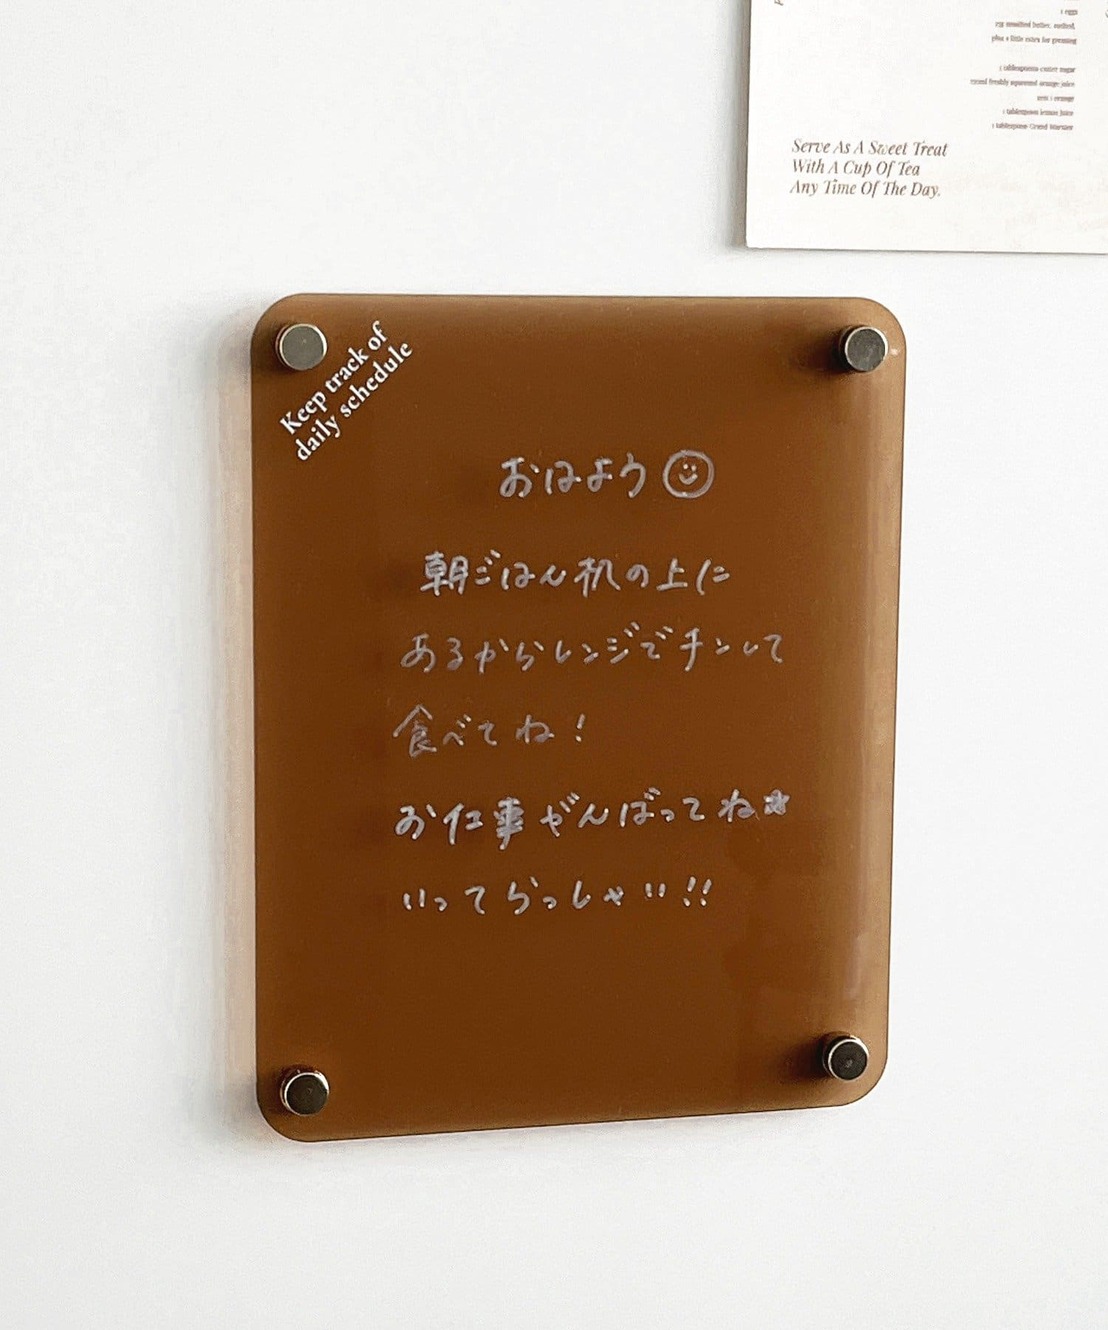 1 eggs
25g unsalted butter, melted,
plus a little extra for greasing
1 tablespoon lemon juice
1 tablespoon Grand Marnier
Serve As A Sweet Treat
With A Cup Of Tea
Any Time Of The Day.
Keep track of
daily schedule
おはよう
朝ごはん机の上に
あるからレンジでチンして
食べてね！
お仕事がんばってね
いってらっしゃい!!